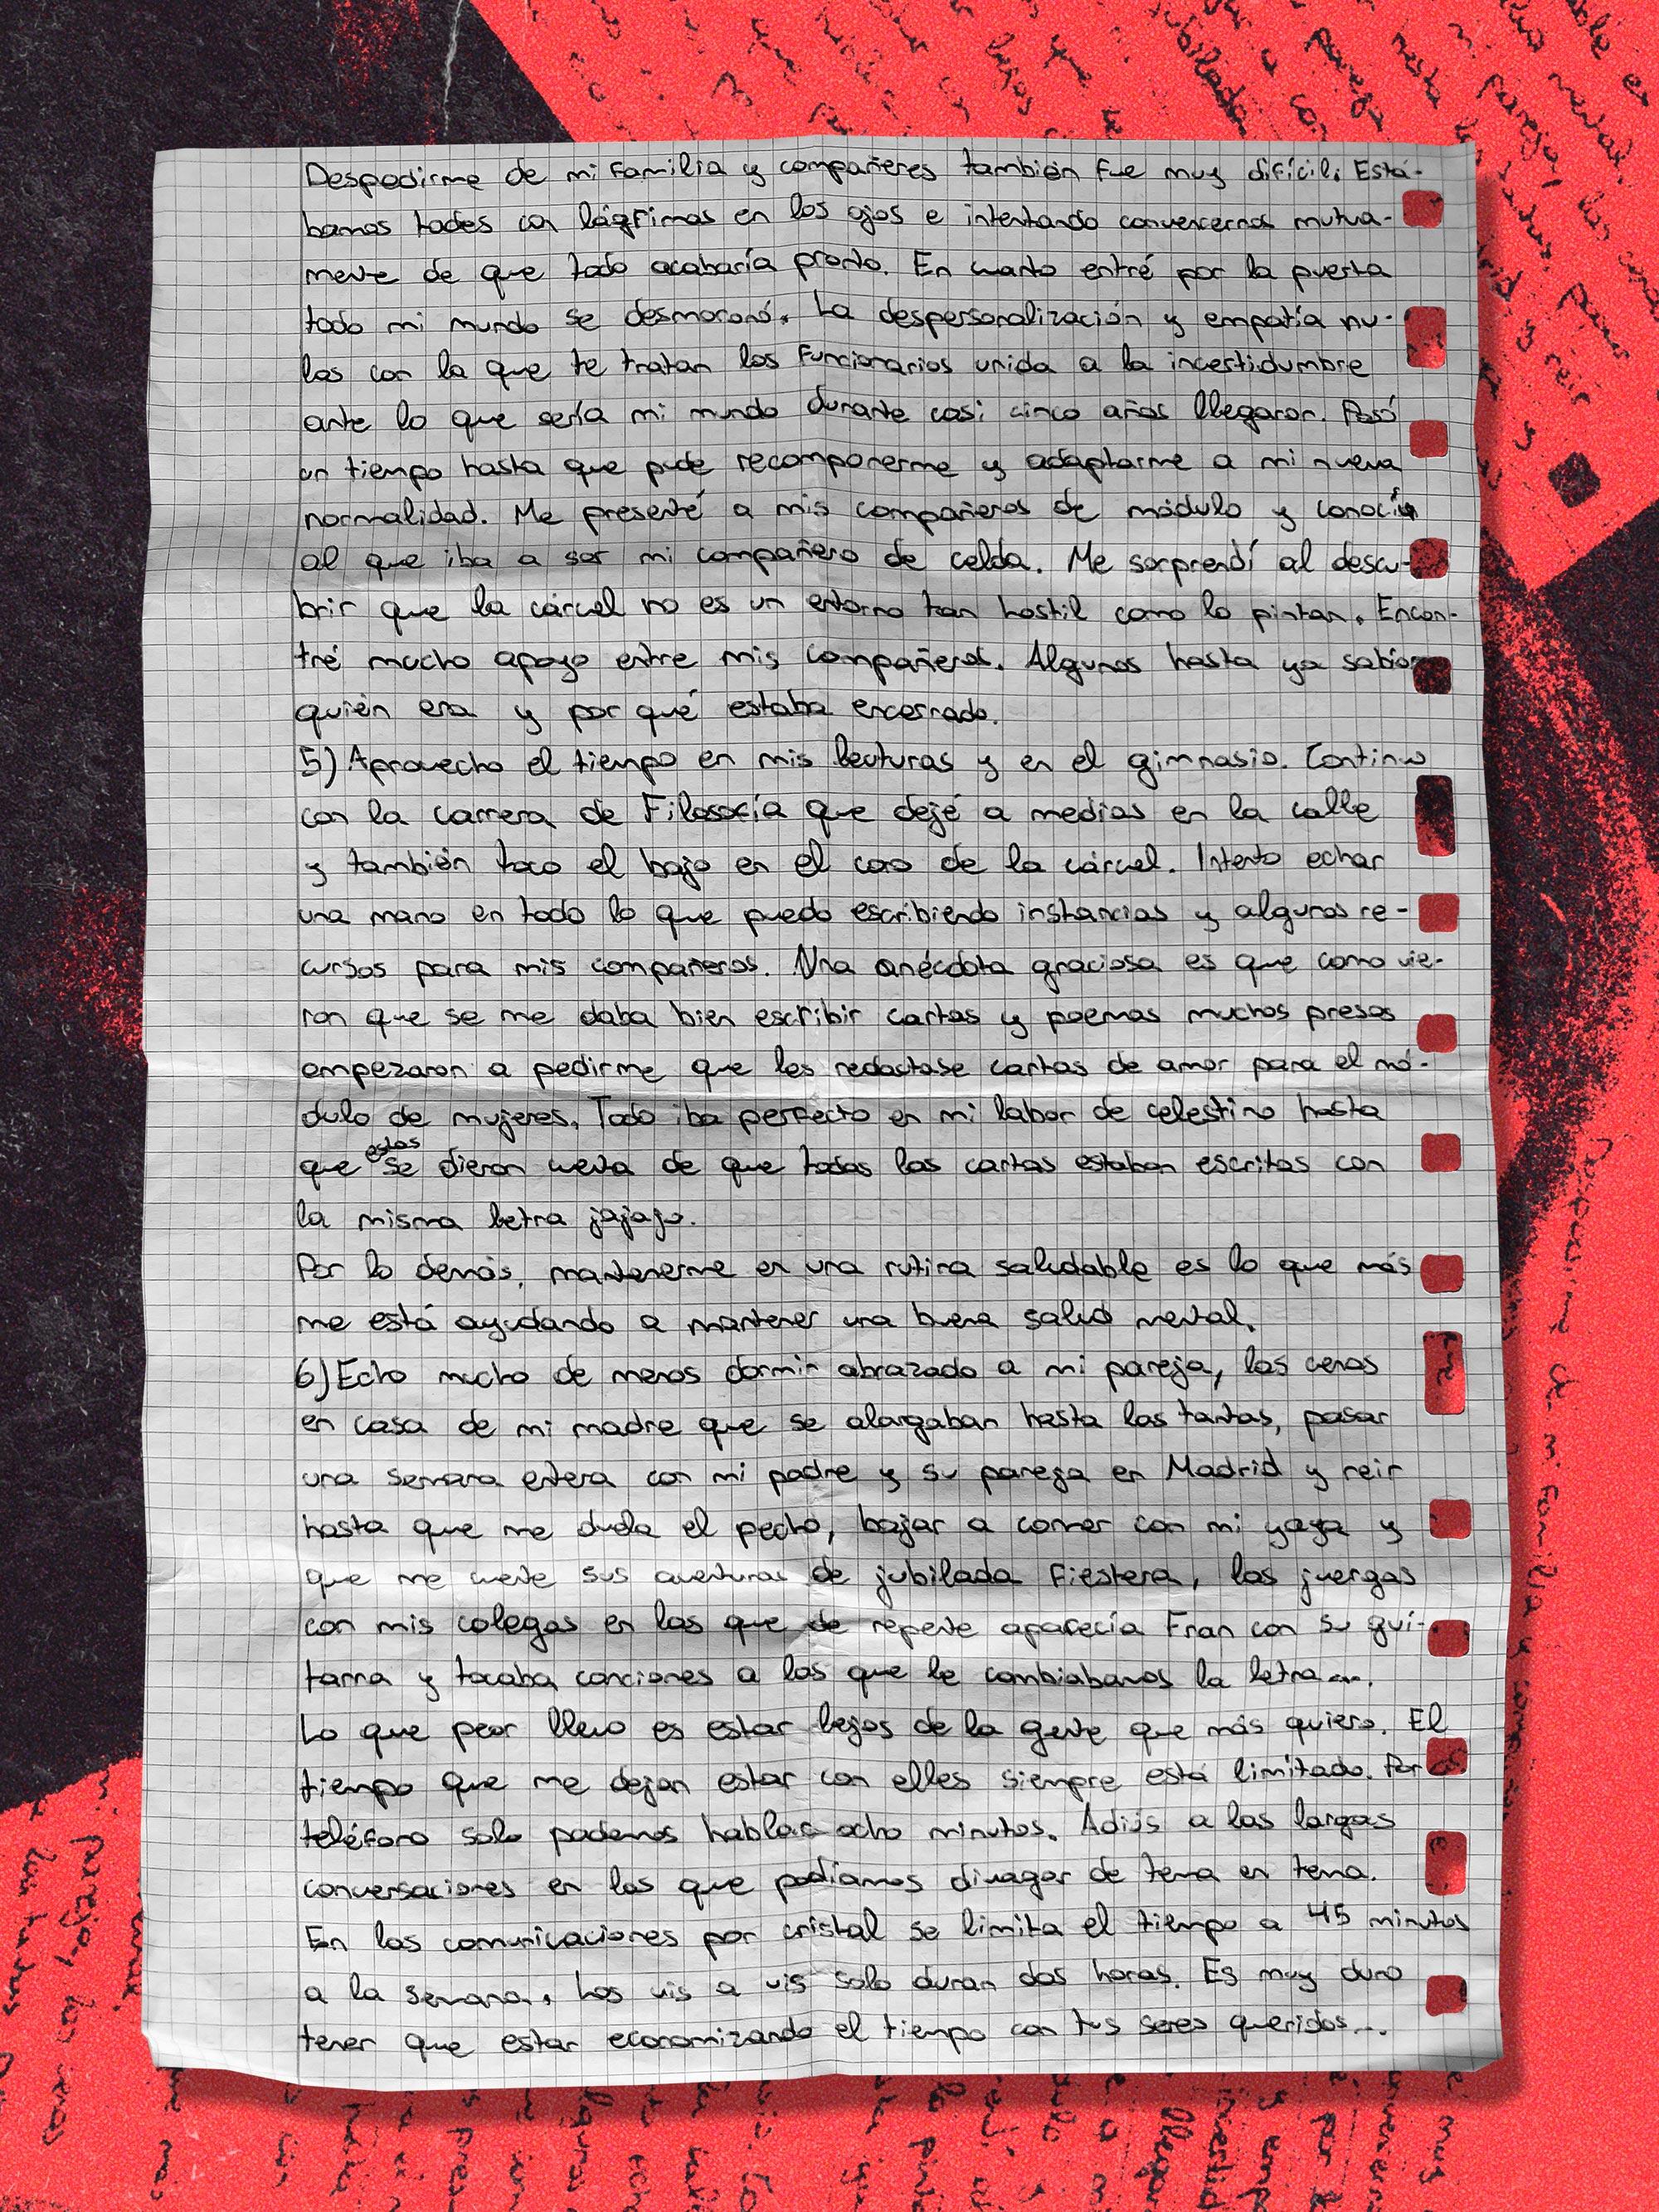 Despedirme de mi familia y compañeres también fue muy difícil. Está-
bamos todes con lágrimas en los ojos e intentando convencernos mutua-
mente de que todo acabaría pronto. En cuanto entré por la puerta
todo mi mundo se desmoronó. La despersonalización y empatía nu-
las con la que te tratan los funcionarios unida a la incertidumbre
ante lo que sería mi mundo durante casi cinco años llegaron. Pasó
un tiempo hasta que pude recomponerme y adaptarme a mi nueva
normalidad. Me presenté a mis compañeros de módulo y conocí
al que iba a ser mi compañero de celda. Me sorprendí al descu-
brir que la cárcel no es un entorno tan hostil como lo pintan. Encon-
tré mucho apoyo entre mis compañeros. Algunos hasta ya sabían
quién era y por qué estaba encerrado.
5) Aprovecho el tiempo en mis lecturas y en el gimnasio. Continuo
con la carrera de Filosofía que dejé a medias en la calle
y también toco el bajo en el coro de la cárcel. Intento echar
una mano en todo lo que puedo escribiendo instancias y algunos re-
cursos para mis compañeros. Una anécdota graciosa es que como vie-
ron que se me daba bien escribir cartas y poemas muchos presos
empezaron a pedirme que les redactase cartas de amor para el mó-
dulo de mujeres. Todo iba perfecto en mi labor de celestino hasta
que estas se dieron cuenta de que todas las cartas estaban escritas con
la misma letra jajaja.
Por lo demás, mantenerme en una rutina saludable es lo que más
me está ayudando a mantener una buena salud mental.
6) Echo mucho de menos dormir abrazado a mi pareja, las cenas
en casa de mi madre que se alargaban hasta las tantas, pasar
una semana entera con mi padre y su pareja en Madrid y reir
hasta que me duela el pecho, bajar a comer con mi yaya y
que me cuente sus aventuras de jubilada fiestera, las juergas
con mis colegas en las que de repente aparecía Fran con su gui-
tarra y tocaba canciones a las que le cambiabamos la letra....
Lo que peor llevo es estar lejos de la gente que más quiero. El
tiempo que me dejan estar con elles siempre está limitado. Por
teléfono solo podemos hablar ocho minutos. Adiós a las largas
conversaciones en las que podíamos divagar de tema en tema.
En las comunicaciones por cristal se limita el tiempo a 45 minutos
a la semana. Los vis a vis solo duran dos horas. Es muy duro
tener que estar economizando el tiempo con tus seres queridos...